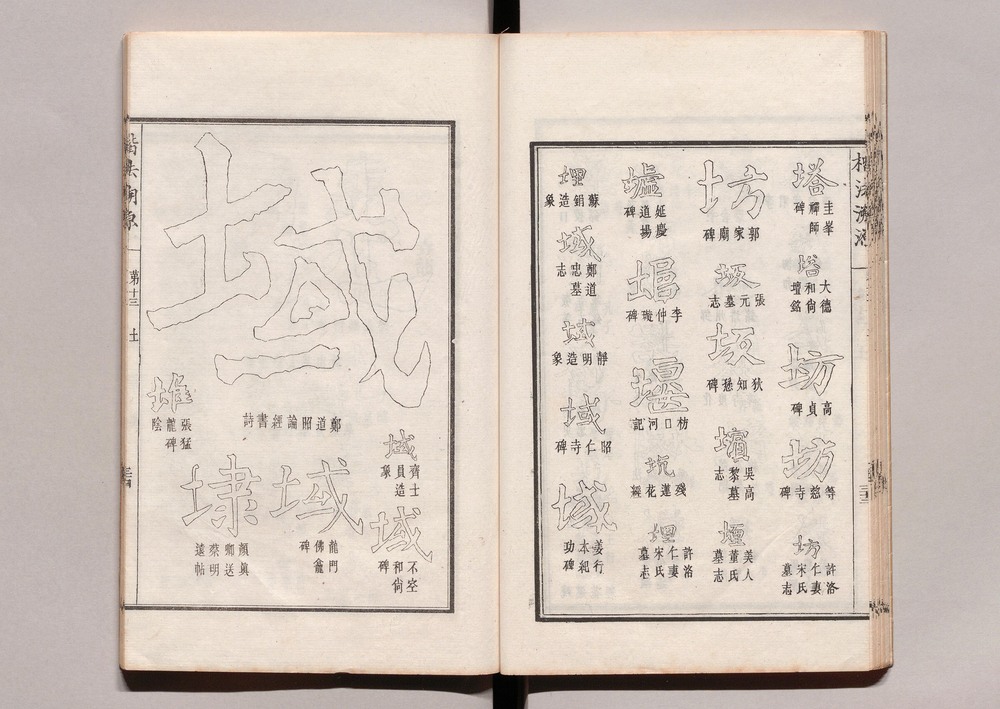 楷法溯源
塔
圭峯禪師碑
塔
大德和尙壇銘
坊
高貞碑
坊
等慈寺碑
坊
許洛仁妻宋氏墓志
坊
郭家廟碑
坂
張元墓志
坂
狄知愻碑
吳高黎墓志
美人董氏墓志
墟
延慶道場碑
李仲璇碑
堰
枋口河記
坑
殘蓮花經
許洛仁妻宋氏墓志
埋
蘇絹造象
域
鄭道忠墓志
域
靜明造象
域
昭仁寺碑
域
姜行本紀功碑
域
鄭道昭論經書詩
域
齊士員造象
域
不空和尙碑
域
龍門佛龕碑
堆
張猛龍碑陰
埭
顏眞卿送蔡明遠帖
第十三 土